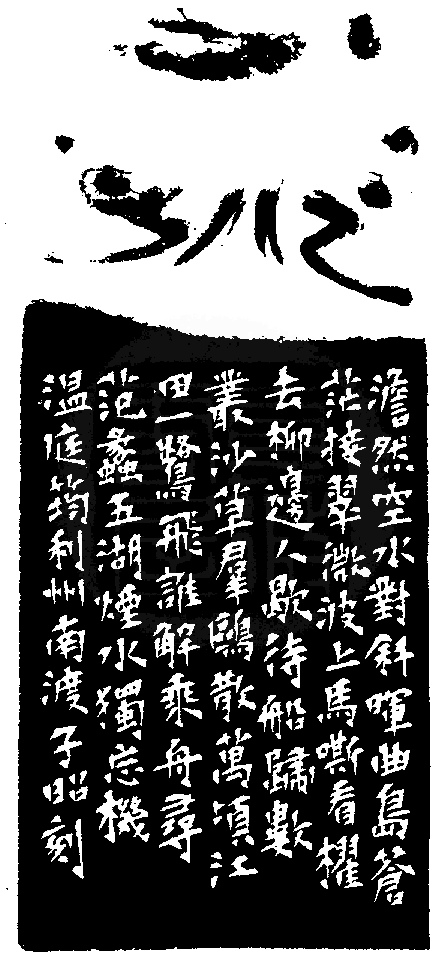 澹然空水對斜暉曲島蒼
茫接翠微波上馬嘶看櫂
去柳邊人歇待船歸數
叢沙草羣鷗散萬頃江
田一鷺飛誰解乘舟尋
范蠡五湖煙水獨忘機
温庭筠利州南渡子昭刻